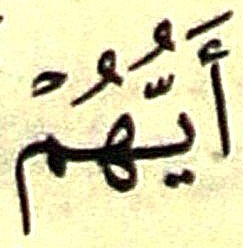 أَيُّهُمْ